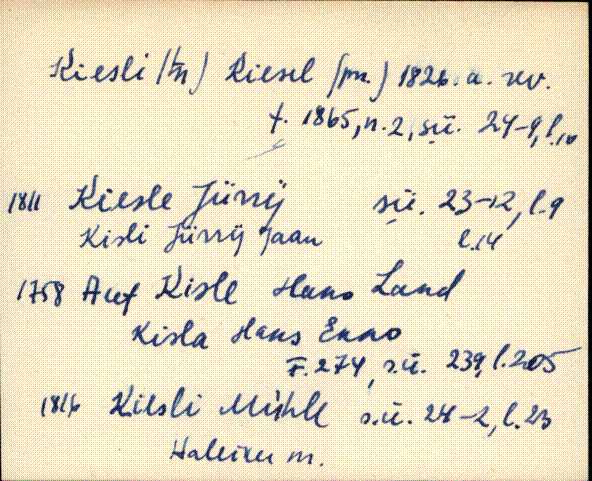 Kiesli (tn) Kiesel (pn.) 1826. a. rev.
f. 1865, n. 2, sü. 24-9, l. 10
1811 Kiesle Jürrÿ sü. 23-12, l. 9
Kisli Jürrÿ Jaan l. 14
1758 Auf Kisle Hans Land
Kisla Hans Enno
F. 274, s.ü. 239, l. 205
1816 Kiesli Mühle s.ü. 24-2, l. 23
m.